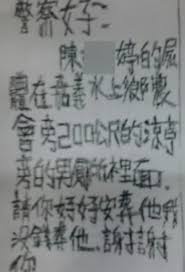 警察好子:
陳 婷的屍
體在嘉義水上鄉農
會旁200公尺的涼亭
旁的男廁所裡面,
請你好好安葬他我
没錢葬他…謝謝
你